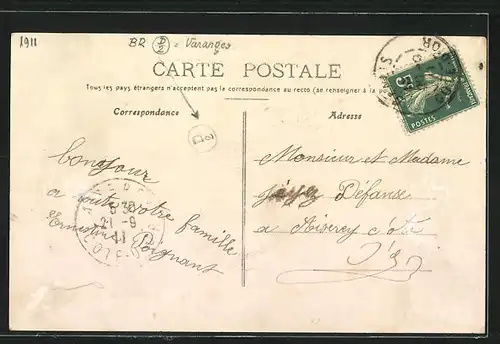 1911
BR D2 = Varanges
CARTE POSTALE
Tous les pays étrangers n'acceptent pas la correspondance au recto (se renseigner à la p
Correspondance
Adresse
D2
bonjour
a toute votre famille
Ernestine Poignant
Monsieur et Madame
Défanse
a Aiserey côte
d'or
8 30
21 - 9
11
5c
POSTES